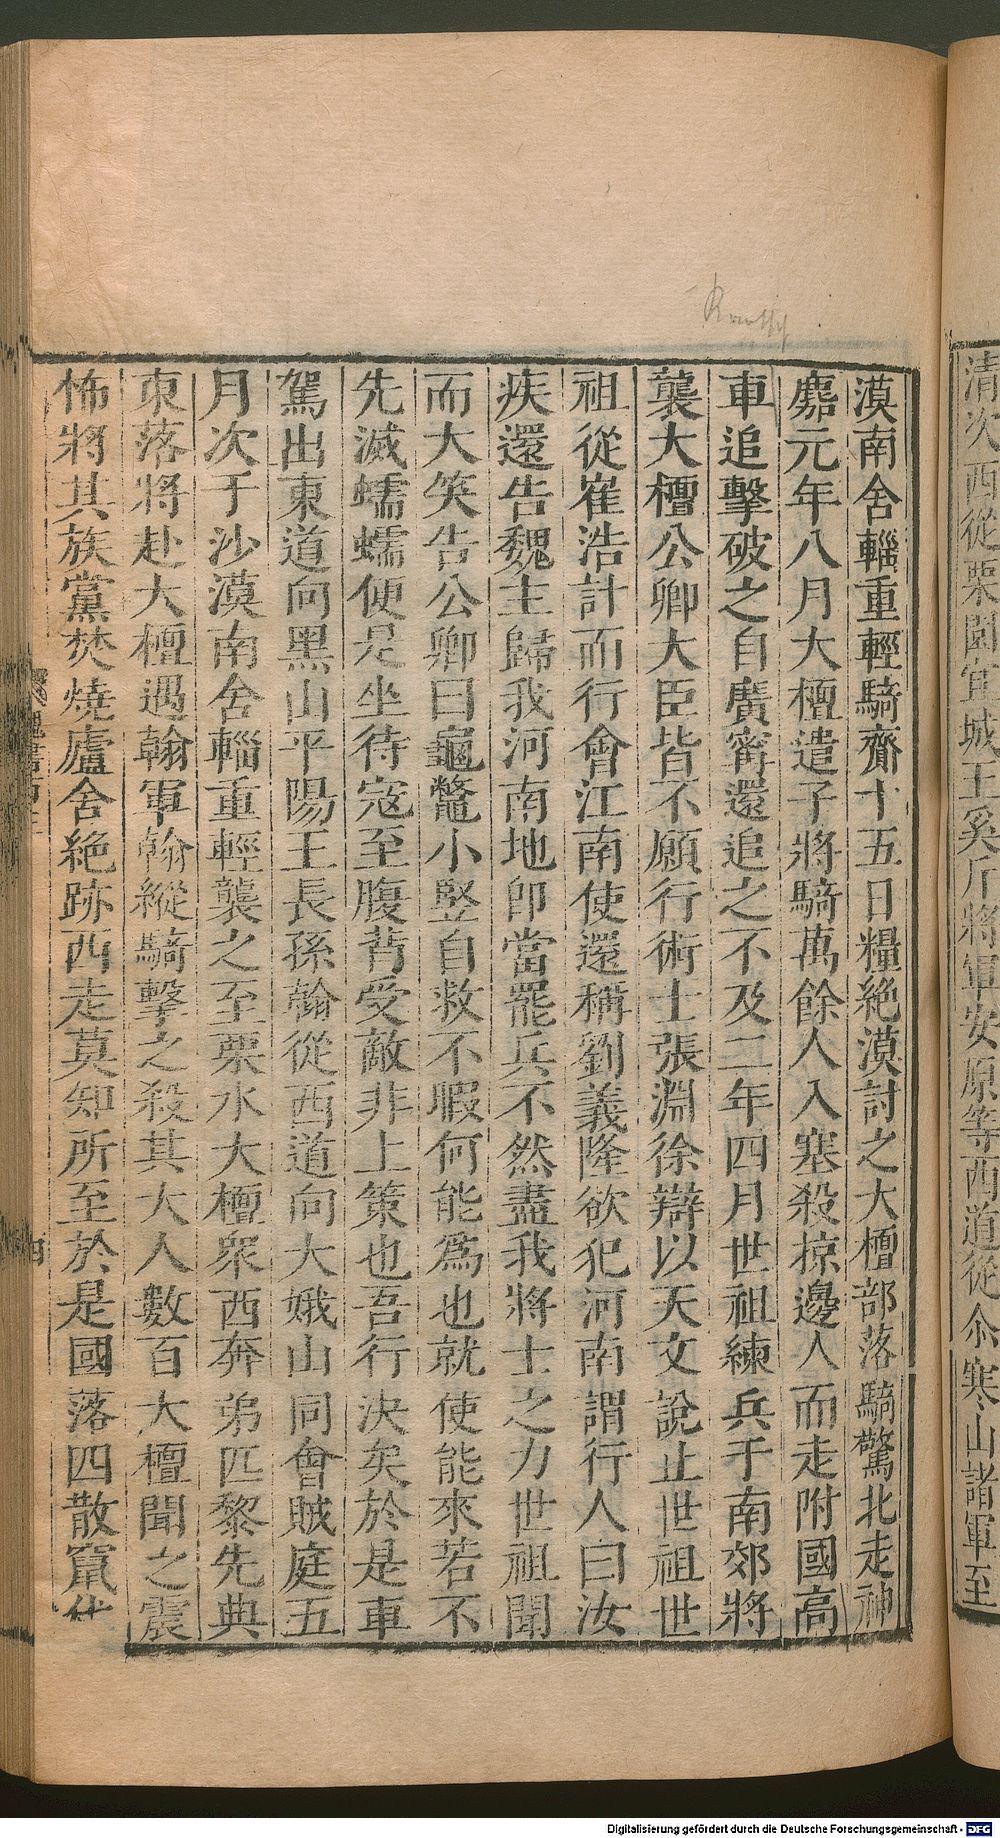 清次西從栗園宜城王奚斤將軍安原等西道從尒寒山諸軍至
漠南舍輜重輕騎齎十五日糧絕漠討之大檀部落騎驚北走神
䴥元年八月大檀遣子將騎萬餘人入塞殺掠邊人而走附國高
車追擊破之自廣甯還追之不及二年四月世祖練兵于南郊將
襲大檀公卿大臣皆不願行術士張淵徐辯以天文說止世祖世
祖從崔浩計而行會江南使還稱劉義隆欲犯河南謂行人曰汝
疾還告魏主歸我河南地卽當罷兵不然盡我將士之力世祖聞
而大笑告公卿曰龜鼈小竪自救不暇何能爲也就使能來若不
先滅蠕蠕便是坐待寇至腹背受敵非上策也吾行決矣於是車
駕出東道向黑山平陽王長孫翰從西道向大娥山同會賊庭五
月次于沙漠南舍輜重輕襲之至栗水大檀衆西奔弟匹黎先典
東落將赴大檀遇翰軍翰縱騎擊之殺其大人數百大檀聞之震
怖將其族黨焚燒廬舍絕跡西走莫知所至於是國落四散竄伏
Digitalisierung gefördert durch die Deutsche Forschungsgemeinschaft - DFG